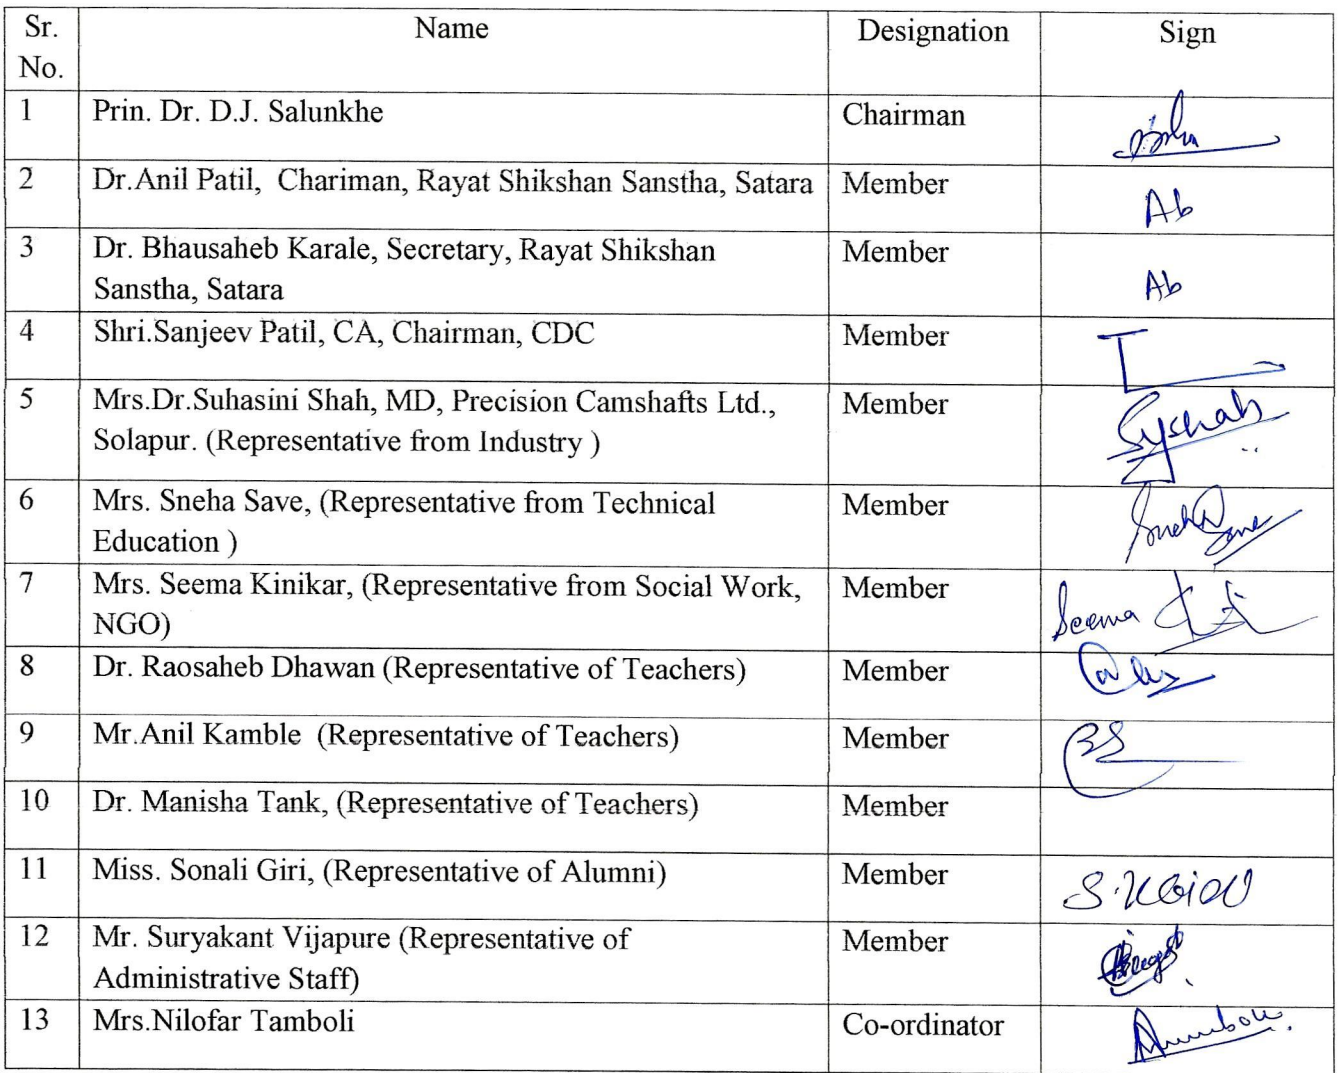 Sr. Name Designation Sign
No.
1 Prin. Dr. D.J. Salunkhe Chairman
2 Dr.Anil Patil, Chariman, Rayat Shikshan Sanstha, Satara Member Ab
3 Dr. Bhausaheb Karale, Secretary, Rayat Shikshan Member
Sanstha, Satara Ab
4 Shri.Sanjeev Patil, CA, Chairman, CDC Member
5 Mrs.Dr.Suhasini Shah, MD, Precision Camshafts Ltd., Member
Solapur. (Representative from Industry )
6 Mrs. Sneha Save, (Representative from Technical Member
Education )
7 Mrs. Seema Kinikar, (Representative from Social Work, Member
NGO) Seema
8 Dr. Raosaheb Dhawan (Representative of Teachers) Member
9 Mr.Anil Kamble (Representative of Teachers) Member
10 Dr. Manisha Tank, (Representative of Teachers) Member
11 Miss. Sonali Giri, (Representative of Alumni) Member
12 Mr. Suryakant Vijapure (Representative of Member
Administrative Staff)
13 Mrs.Nilofar Tamboli Co-ordinator